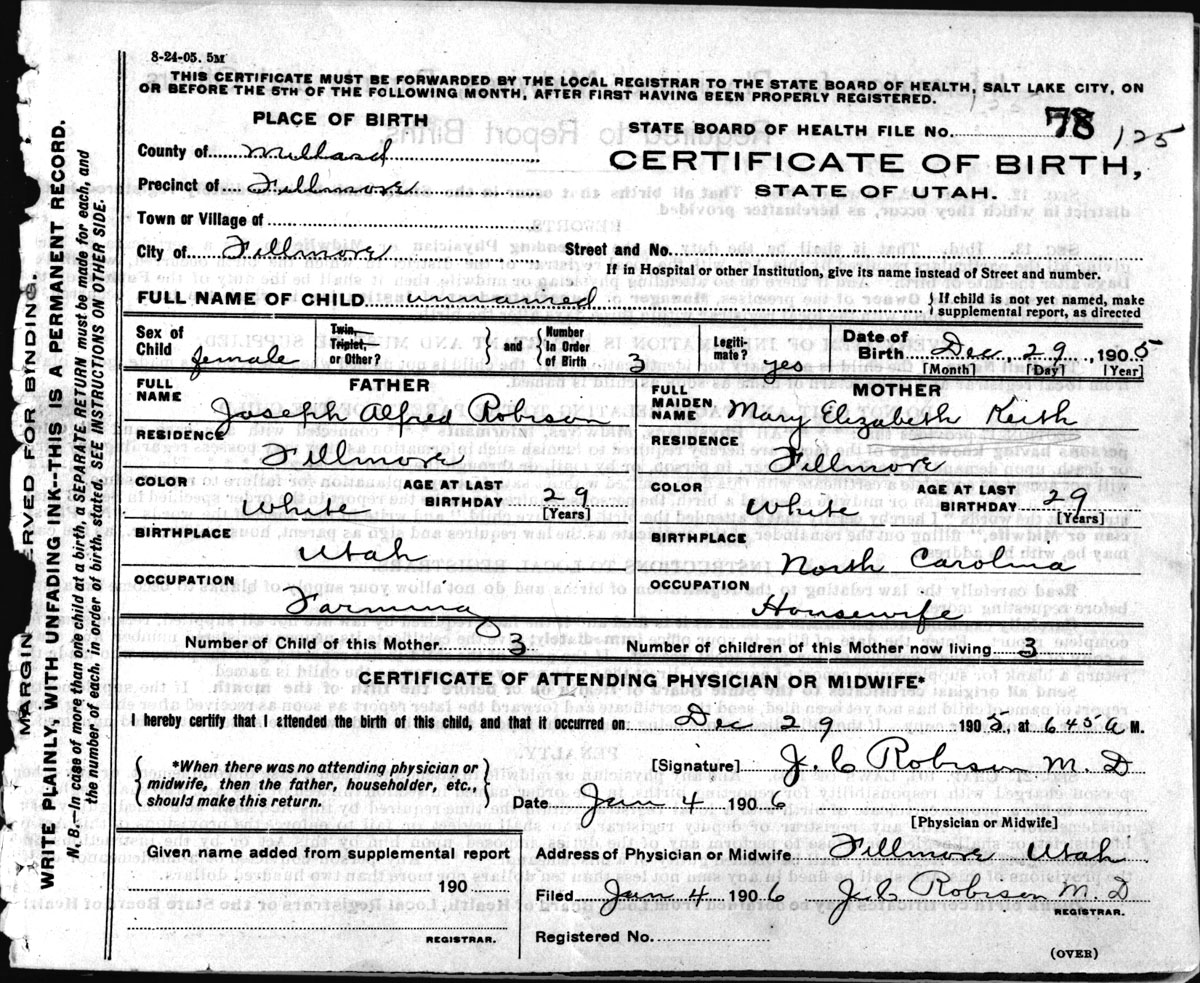 8-24-05. 5M
THIS CERTIFICATE MUST BE FORWARDED BY THE LOCAL REGISTRAR TO THE STATE BOARD OF HEALTH, SALT LAKE CITY, ON
OR BEFORE THE 5TH OF THE FOLLOWING MONTH, AFTER FIRST HAVING BEEN PROPERLY REGISTERED.
PLACE OF BIRTH
STATE BOARD OF HEALTH FILE No. 78 125
County of Millard
CERTIFICATE OF BIRTH,
Precinct of Fillmore
STATE OF UTAH.
Town or Village of
City of Fillmore Street and No.
If in Hospital or other Institution, give its name instead of Street and number.
FULL NAME OF CHILD unnamed } If child is not yet named, make
supplemental report, as directed
Sex of Child female
Twin, Triplet, or Other? } and { Number in Order of Birth 3
Legiti-mate? yes
Date of Birth Dec 29, 1905
[Month] [Day] [Year]
FATHER
FULL NAME Joseph Alfred Robison
RESIDENCE
Fillmore
COLOR White AGE AT LAST BIRTHDAY 29
[Years]
BIRTHPLACE
Utah
OCCUPATION
Farming
MOTHER
FULL MAIDEN NAME Mary Elizabeth Keith
RESIDENCE
Fillmore
COLOR White AGE AT LAST BIRTHDAY 29
[Years]
BIRTHPLACE
North Carolina
OCCUPATION
Housewife
Number of Child of this Mother 3 Number of children of this Mother now living 3
CERTIFICATE OF ATTENDING PHYSICIAN OR MIDWIFE*
I hereby certify that I attended the birth of this child, and that it occurred on Dec 29 1905, at 645 a M.
{ *When there was no attending physician or
midwife, then the father, householder, etc.,
should make this return. }
[Signature] J. C Robison M. D
Date Jan 4 1906
[Physician or Midwife]
Given name added from supplemental report
190
REGISTRAR.
Address of Physician or Midwife Fillmore Utah
Filed Jan 4 1906 J. C Robison M. D
REGISTRAR.
Registered No.
(OVER)
MARGIN RESERVED FOR BINDING.
WRITE PLAINLY, WITH UNFADING INK—THIS IS A PERMANENT RECORD.
N. B.—In case of more than one child at a birth, a SEPARATE RETURN must be made for each, and
the number of each, in order of birth, stated. SEE INSTRUCTIONS ON OTHER SIDE.